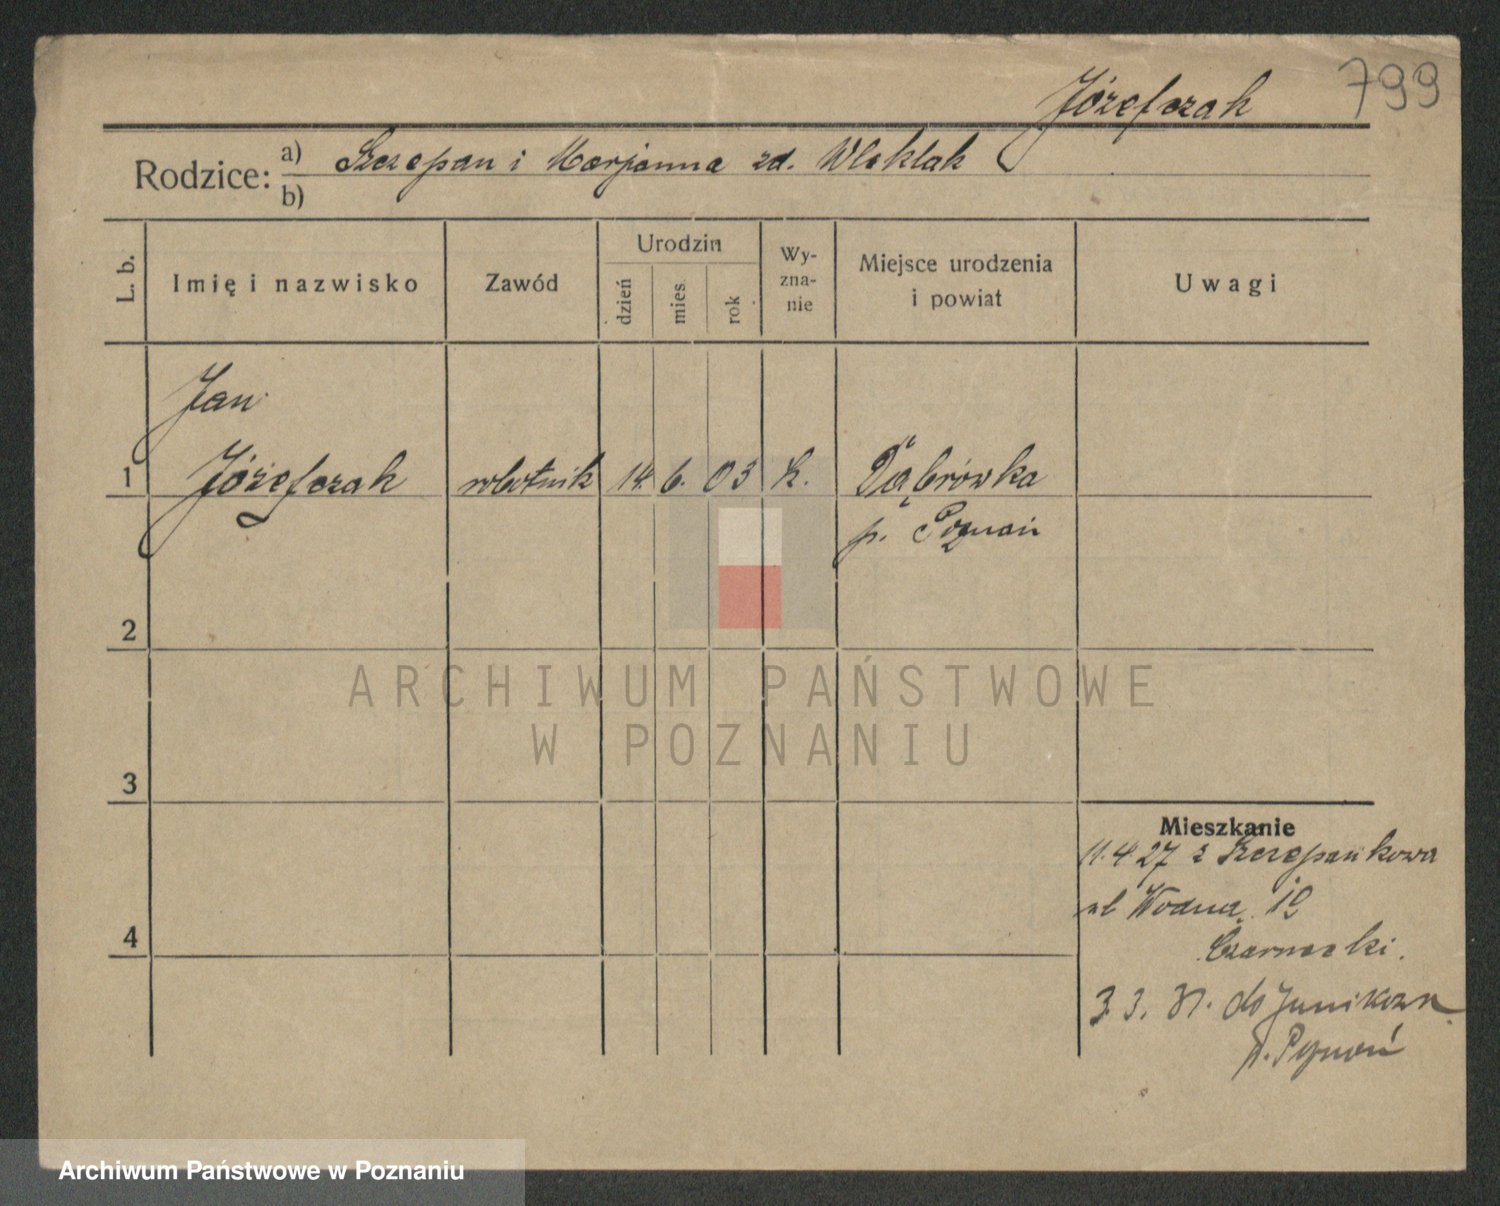 Józefczak 799
Rodzice: a) Szczepan i Marjanna zd. Wleklak
b)
L. b. Imię i nazwisko Zawód Urodzin dzień mies. rok Wy-zna-nie Miejsce urodzenia i powiat Uwagi
Jan
1 Józefczak robotnik 14. 6. 03 k. Dąbrówka
p. Poznań
2
ARCHIWUM PAŃSTWOWE
W POZNANIU
3
Mieszkanie
11.4 27 z Szczepankowa
ul Wodna 19
4
Czarnecki.
3. 3. 31. do Junikowa
p. Poznań
Archiwum Państwowe w Poznaniu